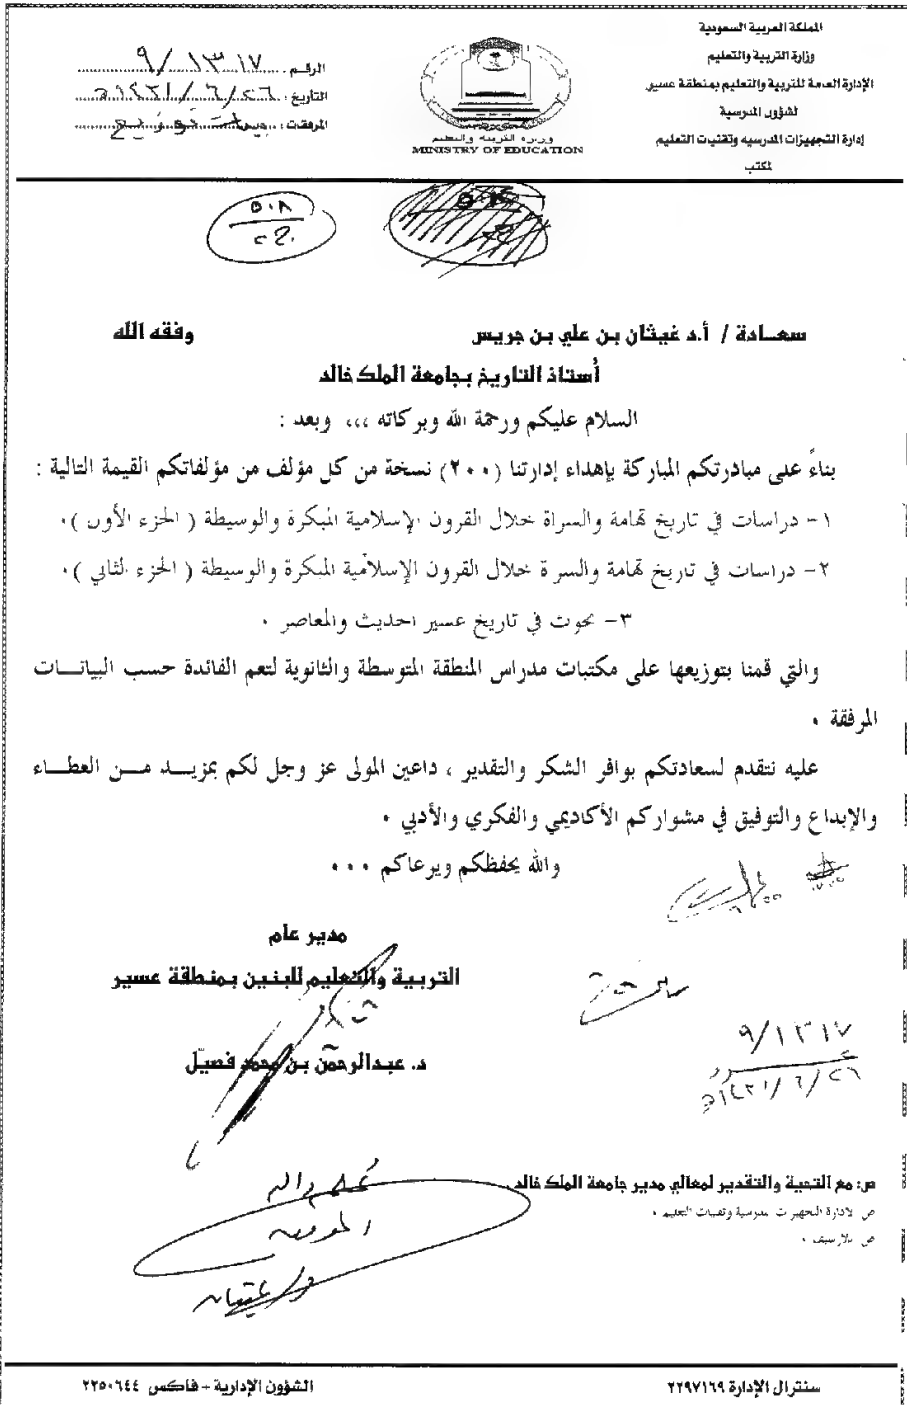 المملكة العربية السعودية
وزارة التربية والتعليم
الإدارة العامة للتربية والتعليم بمنطقة عسير
لشؤون المدرسية
إدارة التجهيزات المدرسية وتقنيات التعليم
مكتب
الرقم : ٩/١٣١٧
التاريخ : ١٤٣١/٦/٢٦هـ
المرفقات : بيانات توزيع
وزارة التربية والتعليم
MINISTRY OF EDUCATION
٥٠٨
سعـادة / أ.د غيثان بن علي بن جريس وفقه الله
أستاذ التاريخ بجامعة الملك خالد
السلام عليكم ورحمة الله وبركاته ،،، وبعد :
بناءً على مبادرتكم المباركة بإهداء إدارتنا (٢٠٠) نسخة من كل مؤلف من مؤلفاتكم القيمة التالية :
١- دراسات في تاريخ تهامة والسراة خلال القرون الإسلامية المبكرة والوسيطة ( الجزء الأول ) .
٢- دراسات في تاريخ تهامة والسراة خلال القرون الإسلامية المبكرة والوسيطة ( الجزء الثاني ) .
٣- بحوث في تاريخ عسير الحديث والمعاصر .
والتي قمنا بتوزيعها على مكتبات مدارس المنطقة المتوسطة والثانوية لتعم الفائدة حسب البيانـــات
المرفقة .
عليه نتقدم لسعادتكم بوافر الشكر والتقدير ، داعين المولى عز وجل لكم بمزيـــد مـــن العطـــاء
والإبداع والتوفيق في مشواركم الأكاديمي والفكري والأدبي .
والله يحفظكم ويرعاكم . . .
مدير عام
التربية والتعليم للبنين بمنطقة عسير
د. عبدالرحمن بن محمد فصيّل
٩/١٣١٧
١٤٣١/٦/٢٦هـ
ص: مع التحية والتقدير لمعالي مدير جامعة الملك خالد .
ص لإدارة التجهيزات المدرسية وتقنيات التعليم .
ص للأرشيف .
سنترال الإدارة ٢٢٩٧١٦٩
الشؤون الإدارية - فاكس ٢٢٥٠٦٤٤